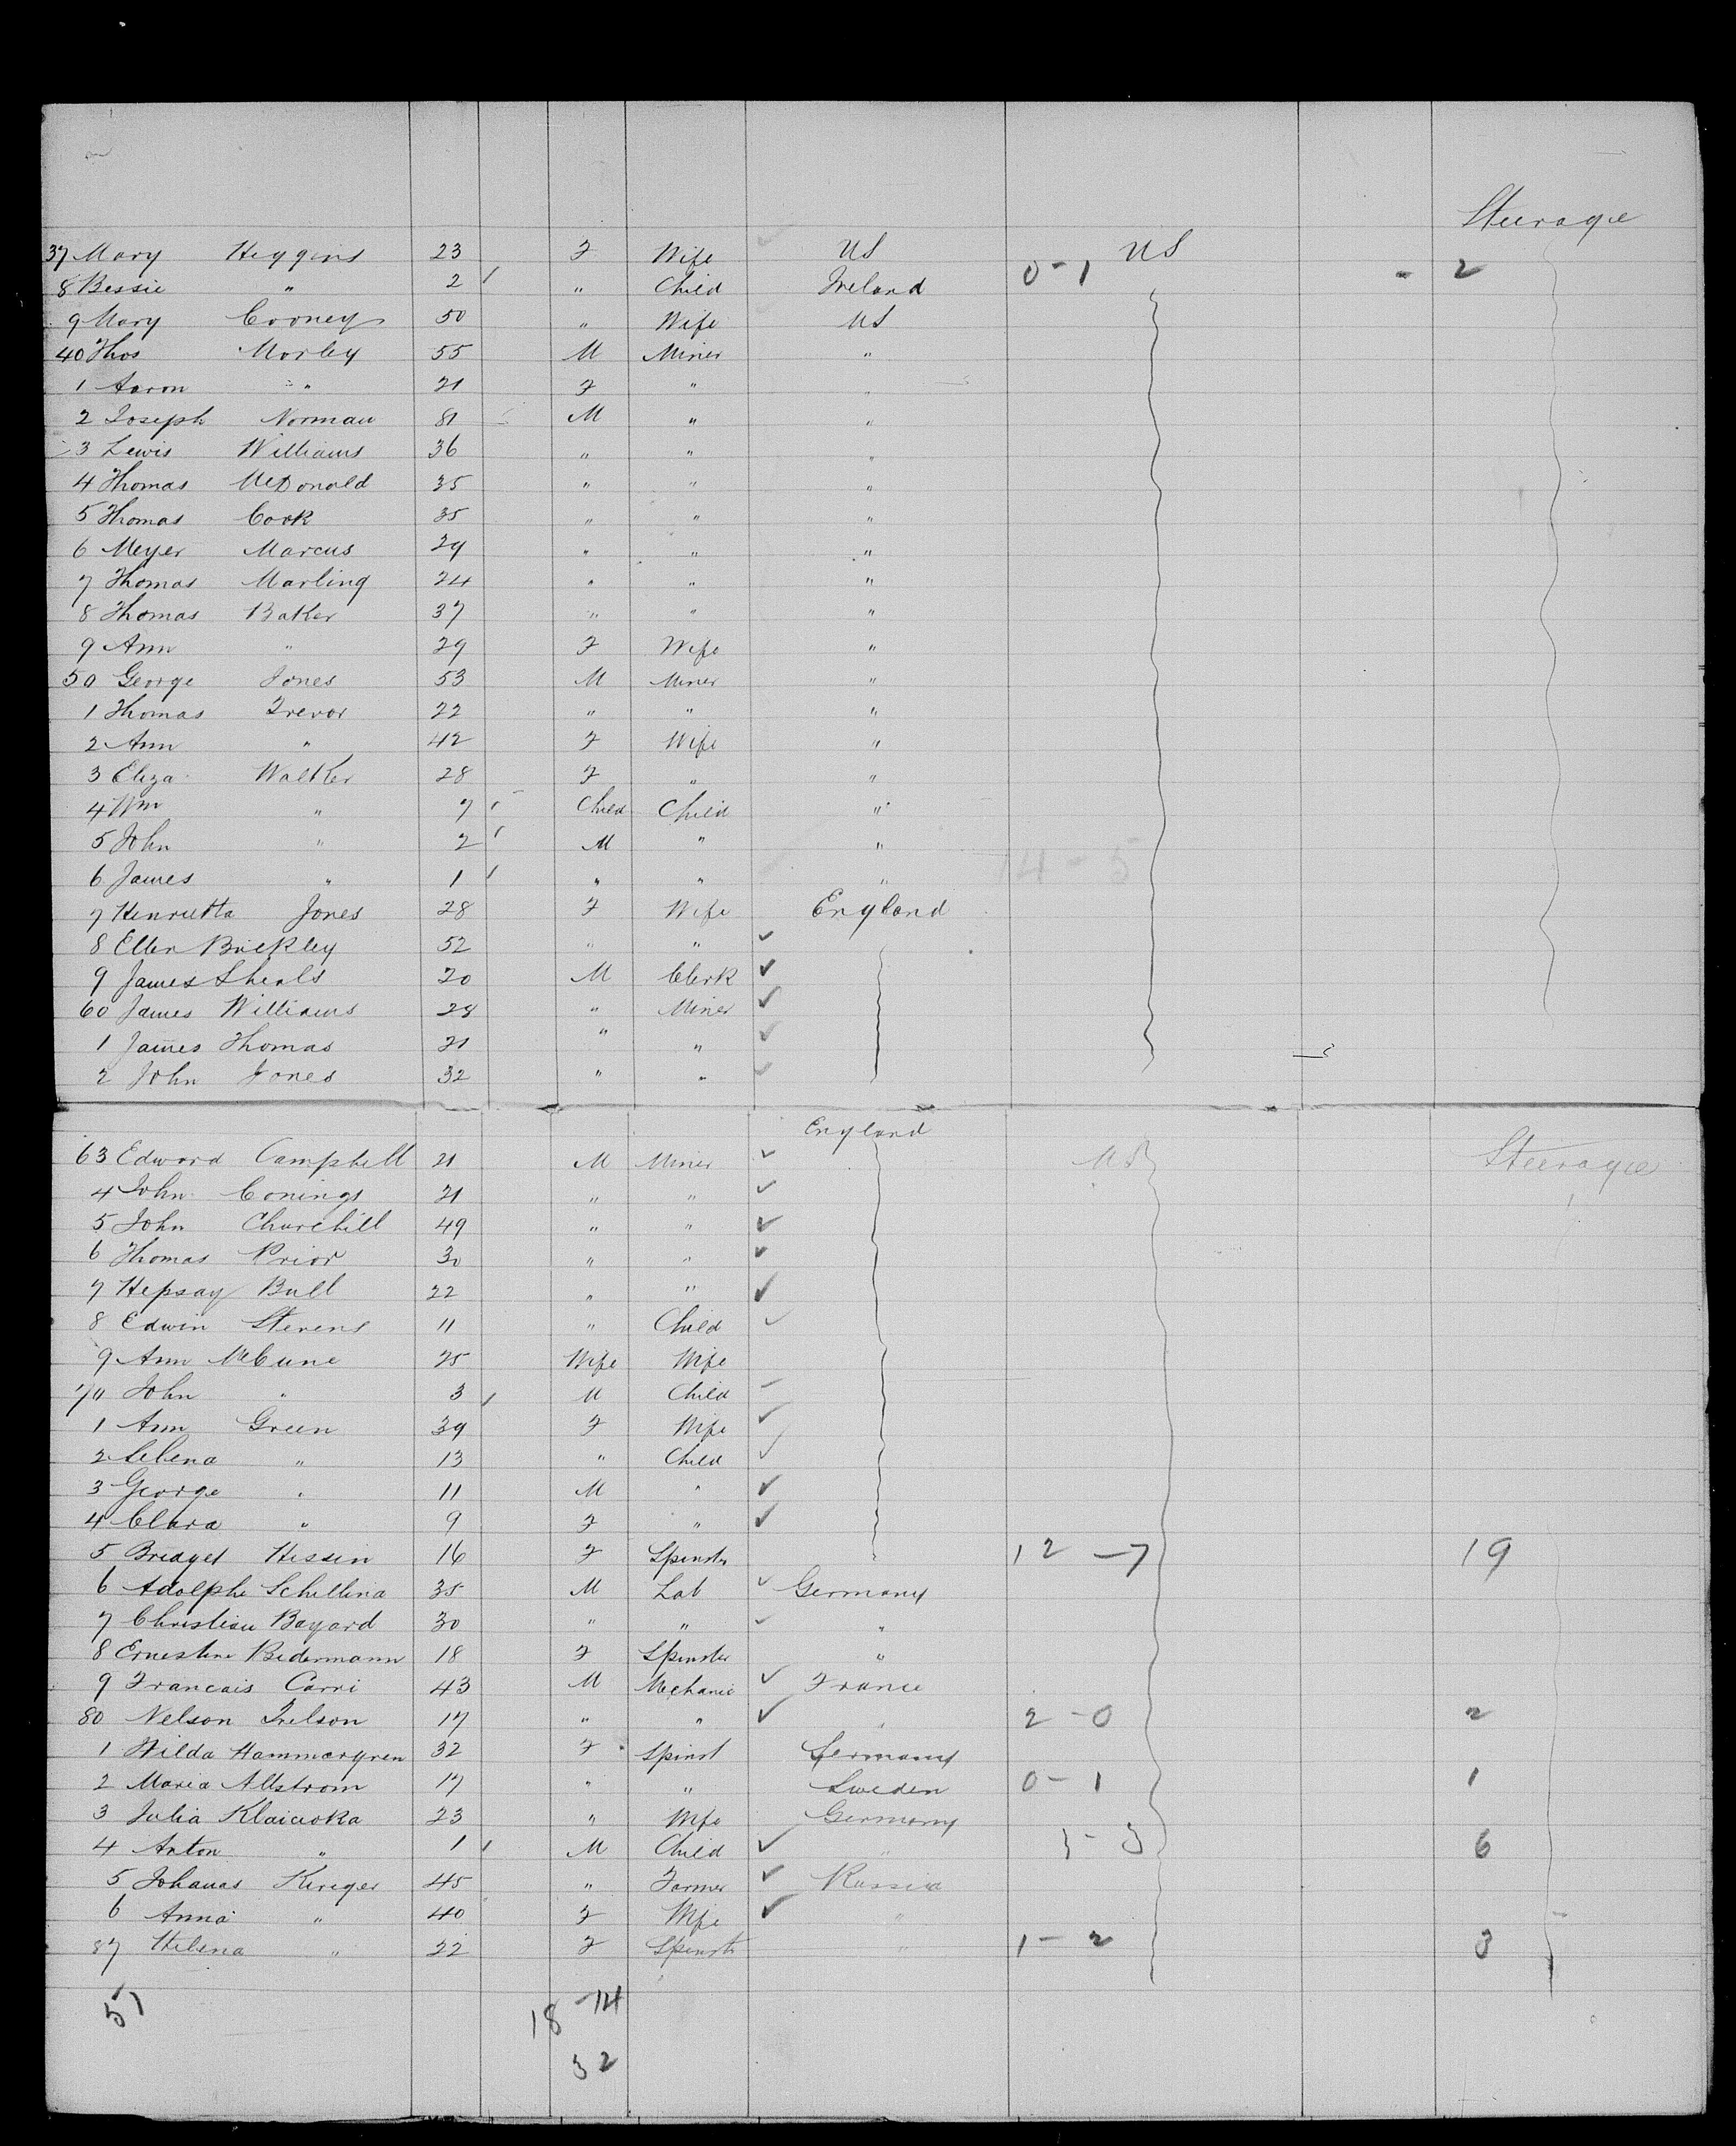 Steerage
37 Mary Higgins 23 F Wife US US
8 Bessie " 2 ' " Child Ireland 0-1 - 2
9 Mary Cooney 50 " Wife US
40 Thos Morley 55 M Miner "
1 Aaron " 21 F " "
2 Joseph Norman 81 M " "
3 Lewis Williams 36 " " "
4 Thomas McDonald 35 " " "
5 Thomas Cook 35 " " "
6 Meyer Marcus 29 " " "
7 Thomas Marling 24 " " "
8 Thomas Baker 37 " " "
9 Ann " 29 F Wife "
50 George Jones 53 M Miner "
1 Thomas Trevor 22 " " "
2 Ann " 42 F Wife "
3 Eliza Walker 28 F " "
4 Wm " 7 ' Child Child "
5 John " 2 ' M " "
6 James " 1 ' " " " 14-5
7 Henrietta Jones 28 F Wife England
8 Ellen Buckley 52 " " ✓
9 James Sheals 20 M Clerk ✓
60 James Williams 28 " Miner ✓
1 James Thomas 21 " " ✓
2 John Jones 32 " " ✓
England
63 Edward Campbell 21 M Miner ✓ US Steerage
4 John Conings 21 " " ✓
5 John Churchill 49 " " ✓
6 Thomas Prior 30 " " ✓
7 Hepsay Bull 22 " " ✓
8 Edwin Stevens 11 " Child ✓
9 Ann McCune 25 Wife Wife
70 John " 3 ' M Child ✓
1 Ann Green 39 F Wife ✓
2 Selena " 13 " Child ✓
3 George " 11 M " ✓
4 Clara " 9 F " ✓
5 Bridget Hessin 16 F Spinster 12-7 19
6 Adolphe Schillina 35 M Lab ✓ Germany
7 Christian Bayard 30 " " ✓ "
8 Ernestine Bidermann 18 F Spinster "
9 Francais Carri 43 M Mechanic ✓ France
80 Nelson 17 " " ✓ " 2-0 2
1 Hilda Hammargren 32 F Spinst Germany
2 Maria Allstrom 17 " " Sweden 0-1 1
3 Julia 23 " Wife Germany
4 Anton " 1 ' M Child ✓ " 3-3 6
5 Johanas Kruger 45 " Farmer ✓ Russia
6 Anna " 40 F Wife ✓ "
87 Helena " 22 F Spinstr " 1-2 3
51 18-14
32